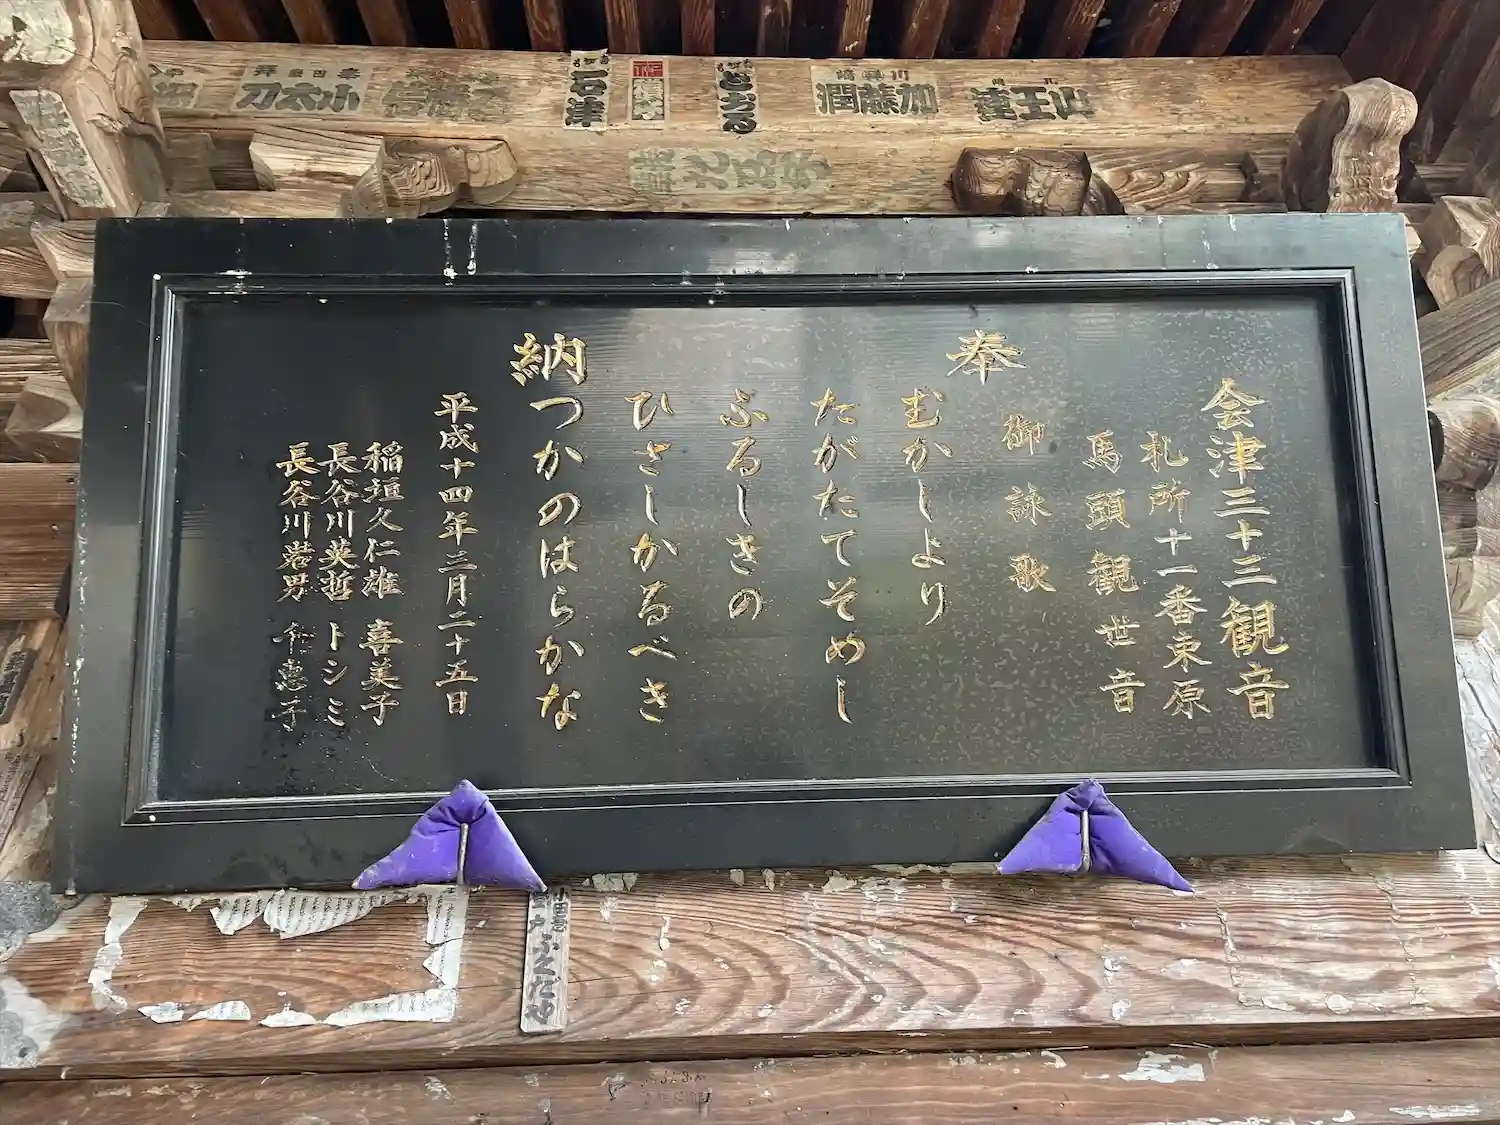 石津
とちる
加藤潤
山王蓮
小太刀
奉
納
会津三十三観音
札所十一番束原
馬頭観世音
御詠歌
むかしより
たがたてそめし
ふるしきの
ひさしかるべき
つかのはらかな
平成十四年三月二十五日
稲垣久仁雄 喜美子
長谷川英哲 トシミ
長谷川岩男 千恵子